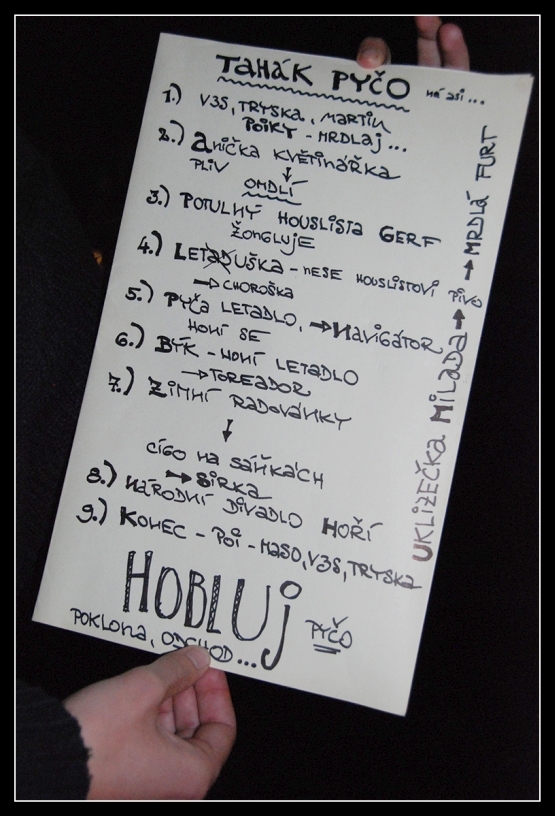 TAHÁK PYČO
1.) V3S, TRYSKA, MARTIN
POIKY - MRDLAJ...
2.) ANIČKA KVĚTINÁŘKA
PLIV
OMDLÍ
3.) POTULNÝ HOUSLISTA GERF
ŽONGLUJE
4.) LETADUŠKA - NESE HOUSLISTOVI PIVO
→ CHOROŠKA
5.) PYČA LETADLO, → NAVIGÁTOR
HONÍ SE
6.) BÝK - HONÍ LETADLO
→ TOREADOR
7.) ZIMNÍ RADOVÁNKY
CÍGO NA SÁŇKÁCH
→ SIRKA
8.) NÁRODNÍ DIVADLO HOŘÍ
9.) KONEC - POI - MASO, V3S, TRYSKA
HOBLUJ
PYČO
POKLONA, ODCHOD...
UKLÍZEČKA MILADA → → MRDLÁ FURT